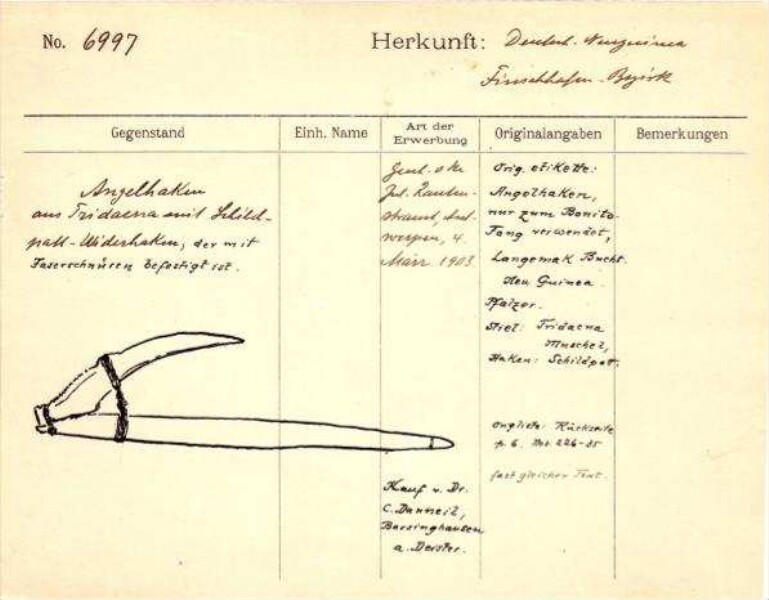 No. 6997
Herkunft: Deutsch-Neuguinea
Finschhafen-Bezirk
Gegenstand
Einh. Name
Art der Erwerbung
Originalangaben
Bemerkungen
Angelhaken
aus Tridacna mit Schild-
patt-Widerhaken, der mit
Faserschnüren befestigt ist.
Jul. Rauten-
strauch, Ant-
werpen, 4.
März 1903.
Kauf v. Dr.
C. Danneil,
Barsinghausen
a. Deister.
Orig. etikette:
Angelhaken,
nur zum Bonito-
Fang verwendet,
Langemak Bucht.
Neu Guinea.
Pfalzer.
Stiel: Tridacna
Muschel,
Haken: Schildpatt.
Rückseite
p. 6. 226-35
fast gleicher Text.